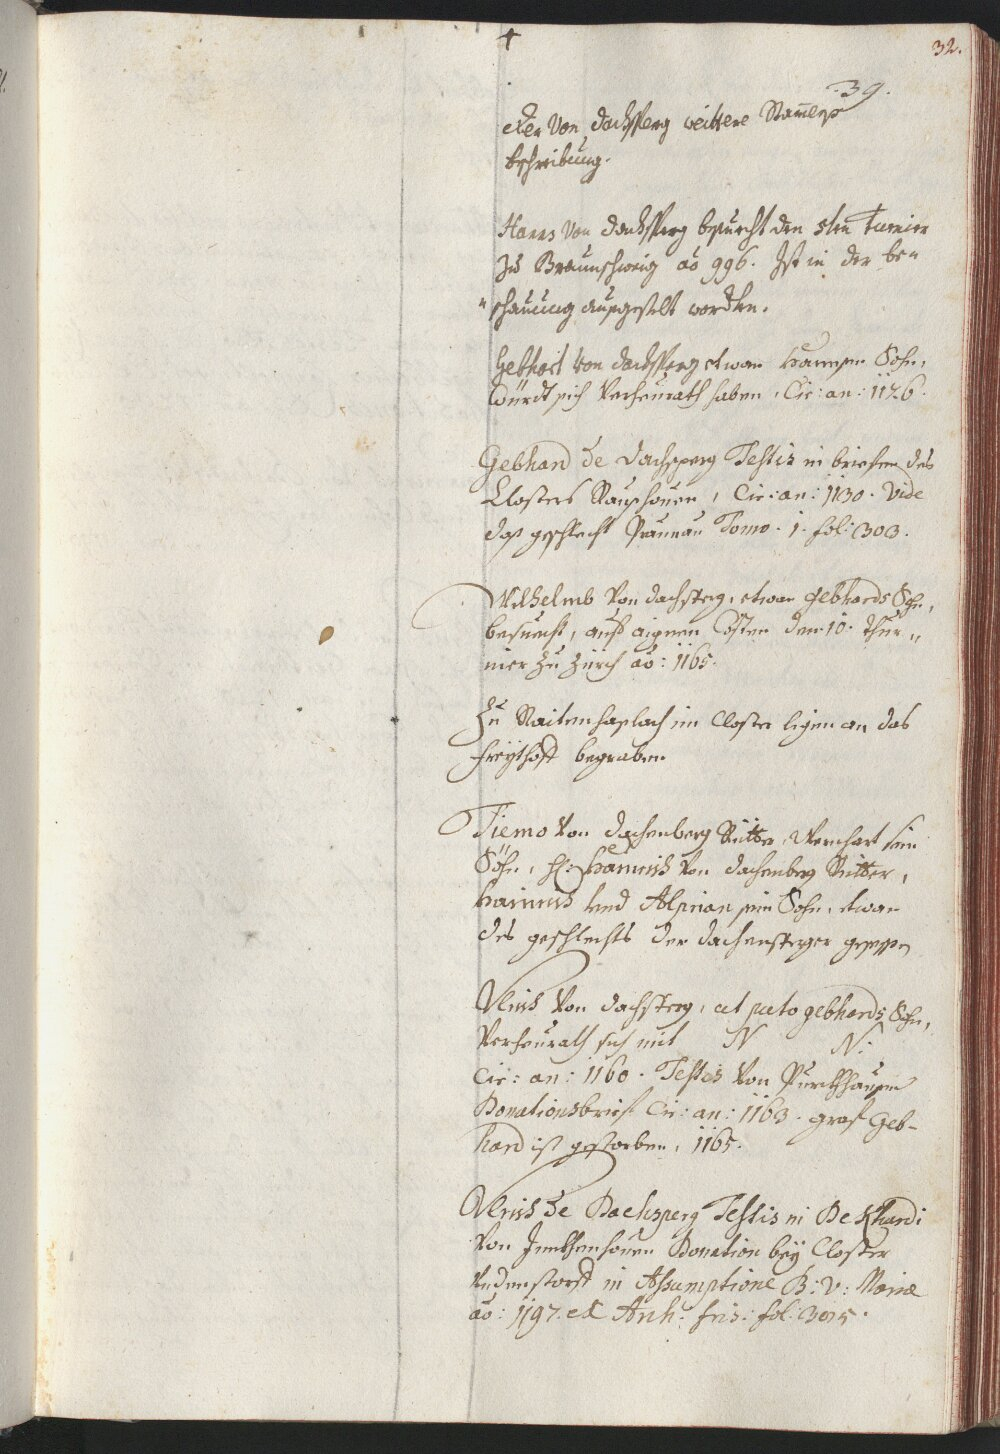 32.
39.
Der Von Dachsperg weittere Stamens
beschreibung.
Hanns Von Dachsperg besuecht den 5ten Turnier
zu Braunschweig ao 996. Ist in der be„
„schauung aufgestelt wordten.
Gebhart Von Dachsperg etwan Hannsen Sohn,
würdt sich Verheurath haben, Cir: an: 1126.
Gebhard de Dachsperg Testis in briefen des
Closters Ranshouen, Cir: an: 1130. Vide
das geschlecht Praunau Tomo. 1. fol: 303.
Wilhelmb Von Dachsperg, etwan Gebhards Sohn,
besuecht, auf aignen Costen den 10. Thur„
nier zu Zürch ao: 1165.
Zu Raitenhaslach im Closter ligen an das
freythoff begraben.
Tiemo Von Dachenberg Ritter, Wernhart sein
Sohn, H: Hainrich Von Dachenberg Ritter,
Hainrich Vnd Alprian sein Sohn, etwan
des geschlechts der Dachensperger gewesen
Vlrich Von Dachsperg, ut puto Gebhards Sohn,
Verheurath sich mit N N:
Cir: an: 1160. Testis Von Purckhausen
Donationsbrief Cir: an: 1163. graf Geb-
hard ist gestorben, 1165.
Vlrich de Dachsperg Testis in Dekhardi
Von Donation bey Closter
in Assumptione B: V: Mariæ
ao: 1197. ex Arch: fris: fol: 305.